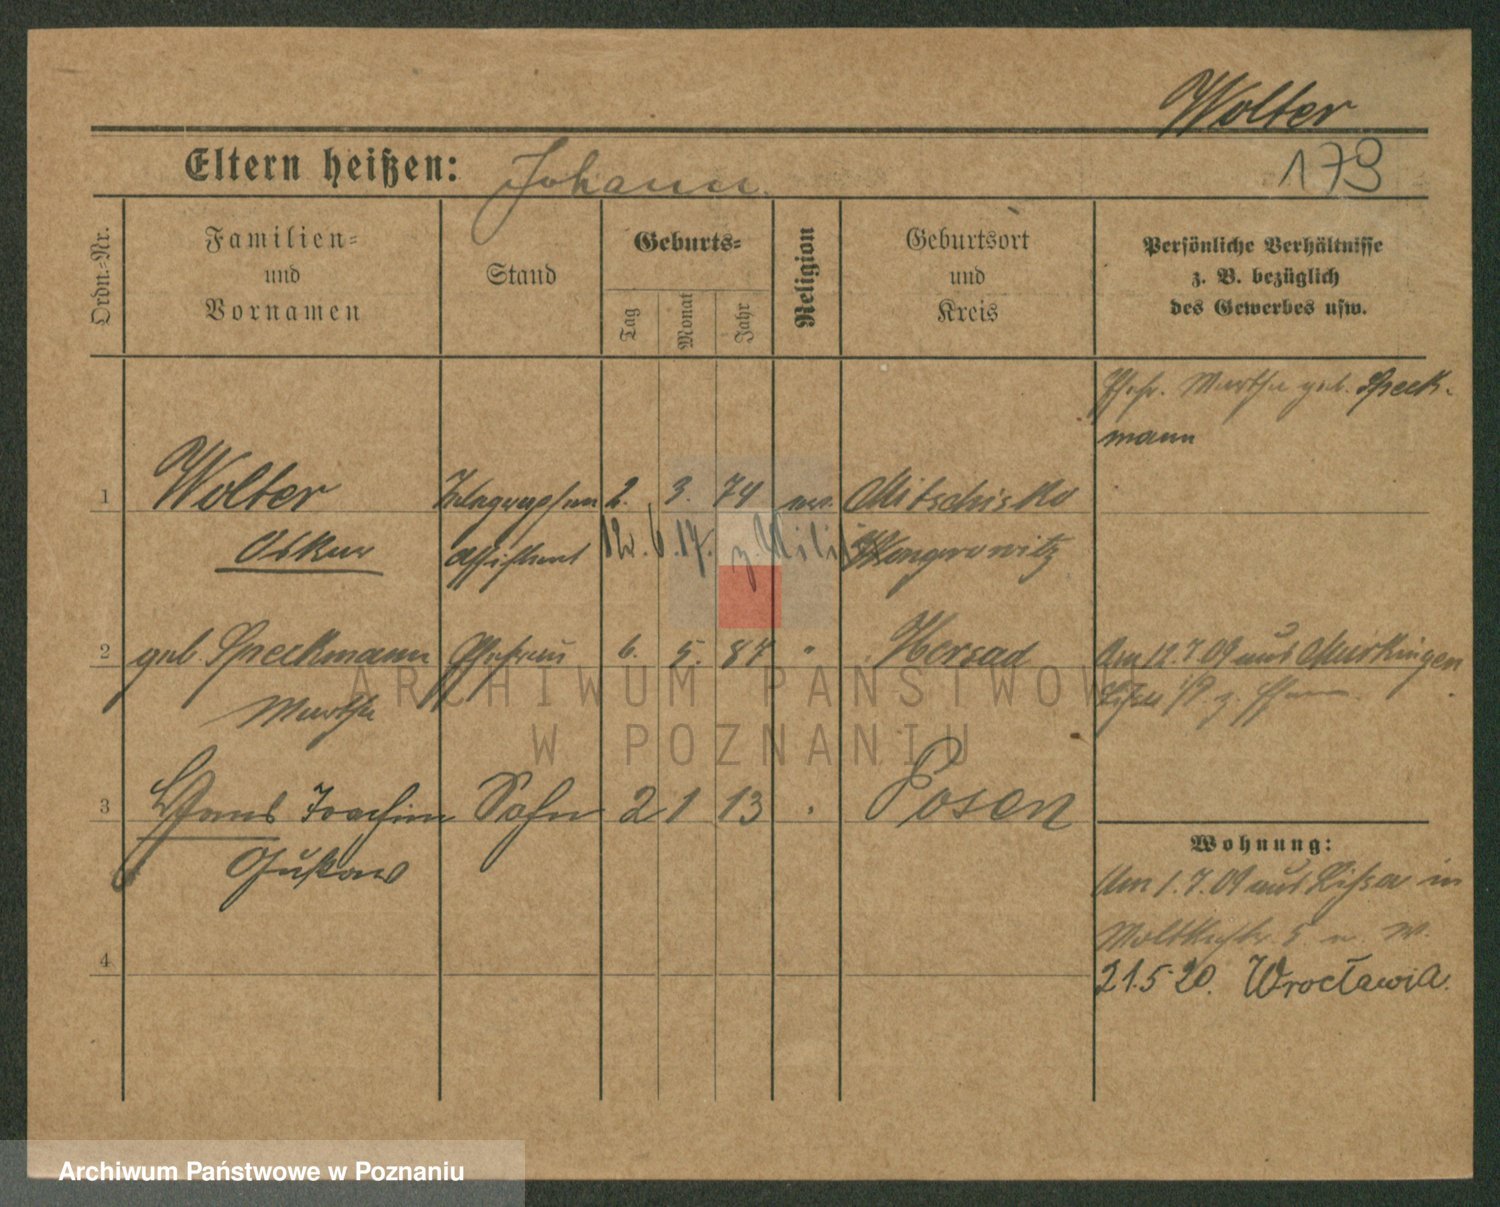 Wolter
Eltern heißen: Johann.
173
Ordn.-Nr.
Familien-
und
Vornamen
Stand
Geburts-
Tag
Monat
Jahr
Religion
Geburtsort
und
Kreis
Persönliche Verhältnisse
z. B. bezüglich
des Gewerbes usw.
Ehefr. Martha geb. Speck-
mann
1 Wolter Telegraphen 2. 3. 74 Mitschisko
Oskar assistent 12. 6. 17. z. Wongrowitz
2 geb. Speckmann Ehefrau 6. 5. 87 " Am 12.7.09 aus
Martha
3 Hans Joachim Sohn 2 1 13 " Posen
Gustav
Wohnung:
Am 1.7.09 aus Lissa in
Moltkestr. 5
4
21.5.20. Wrocławia.
ARCHIWUM PAŃSTWOWE
W POZNANIU
Archiwum Państwowe w Poznaniu